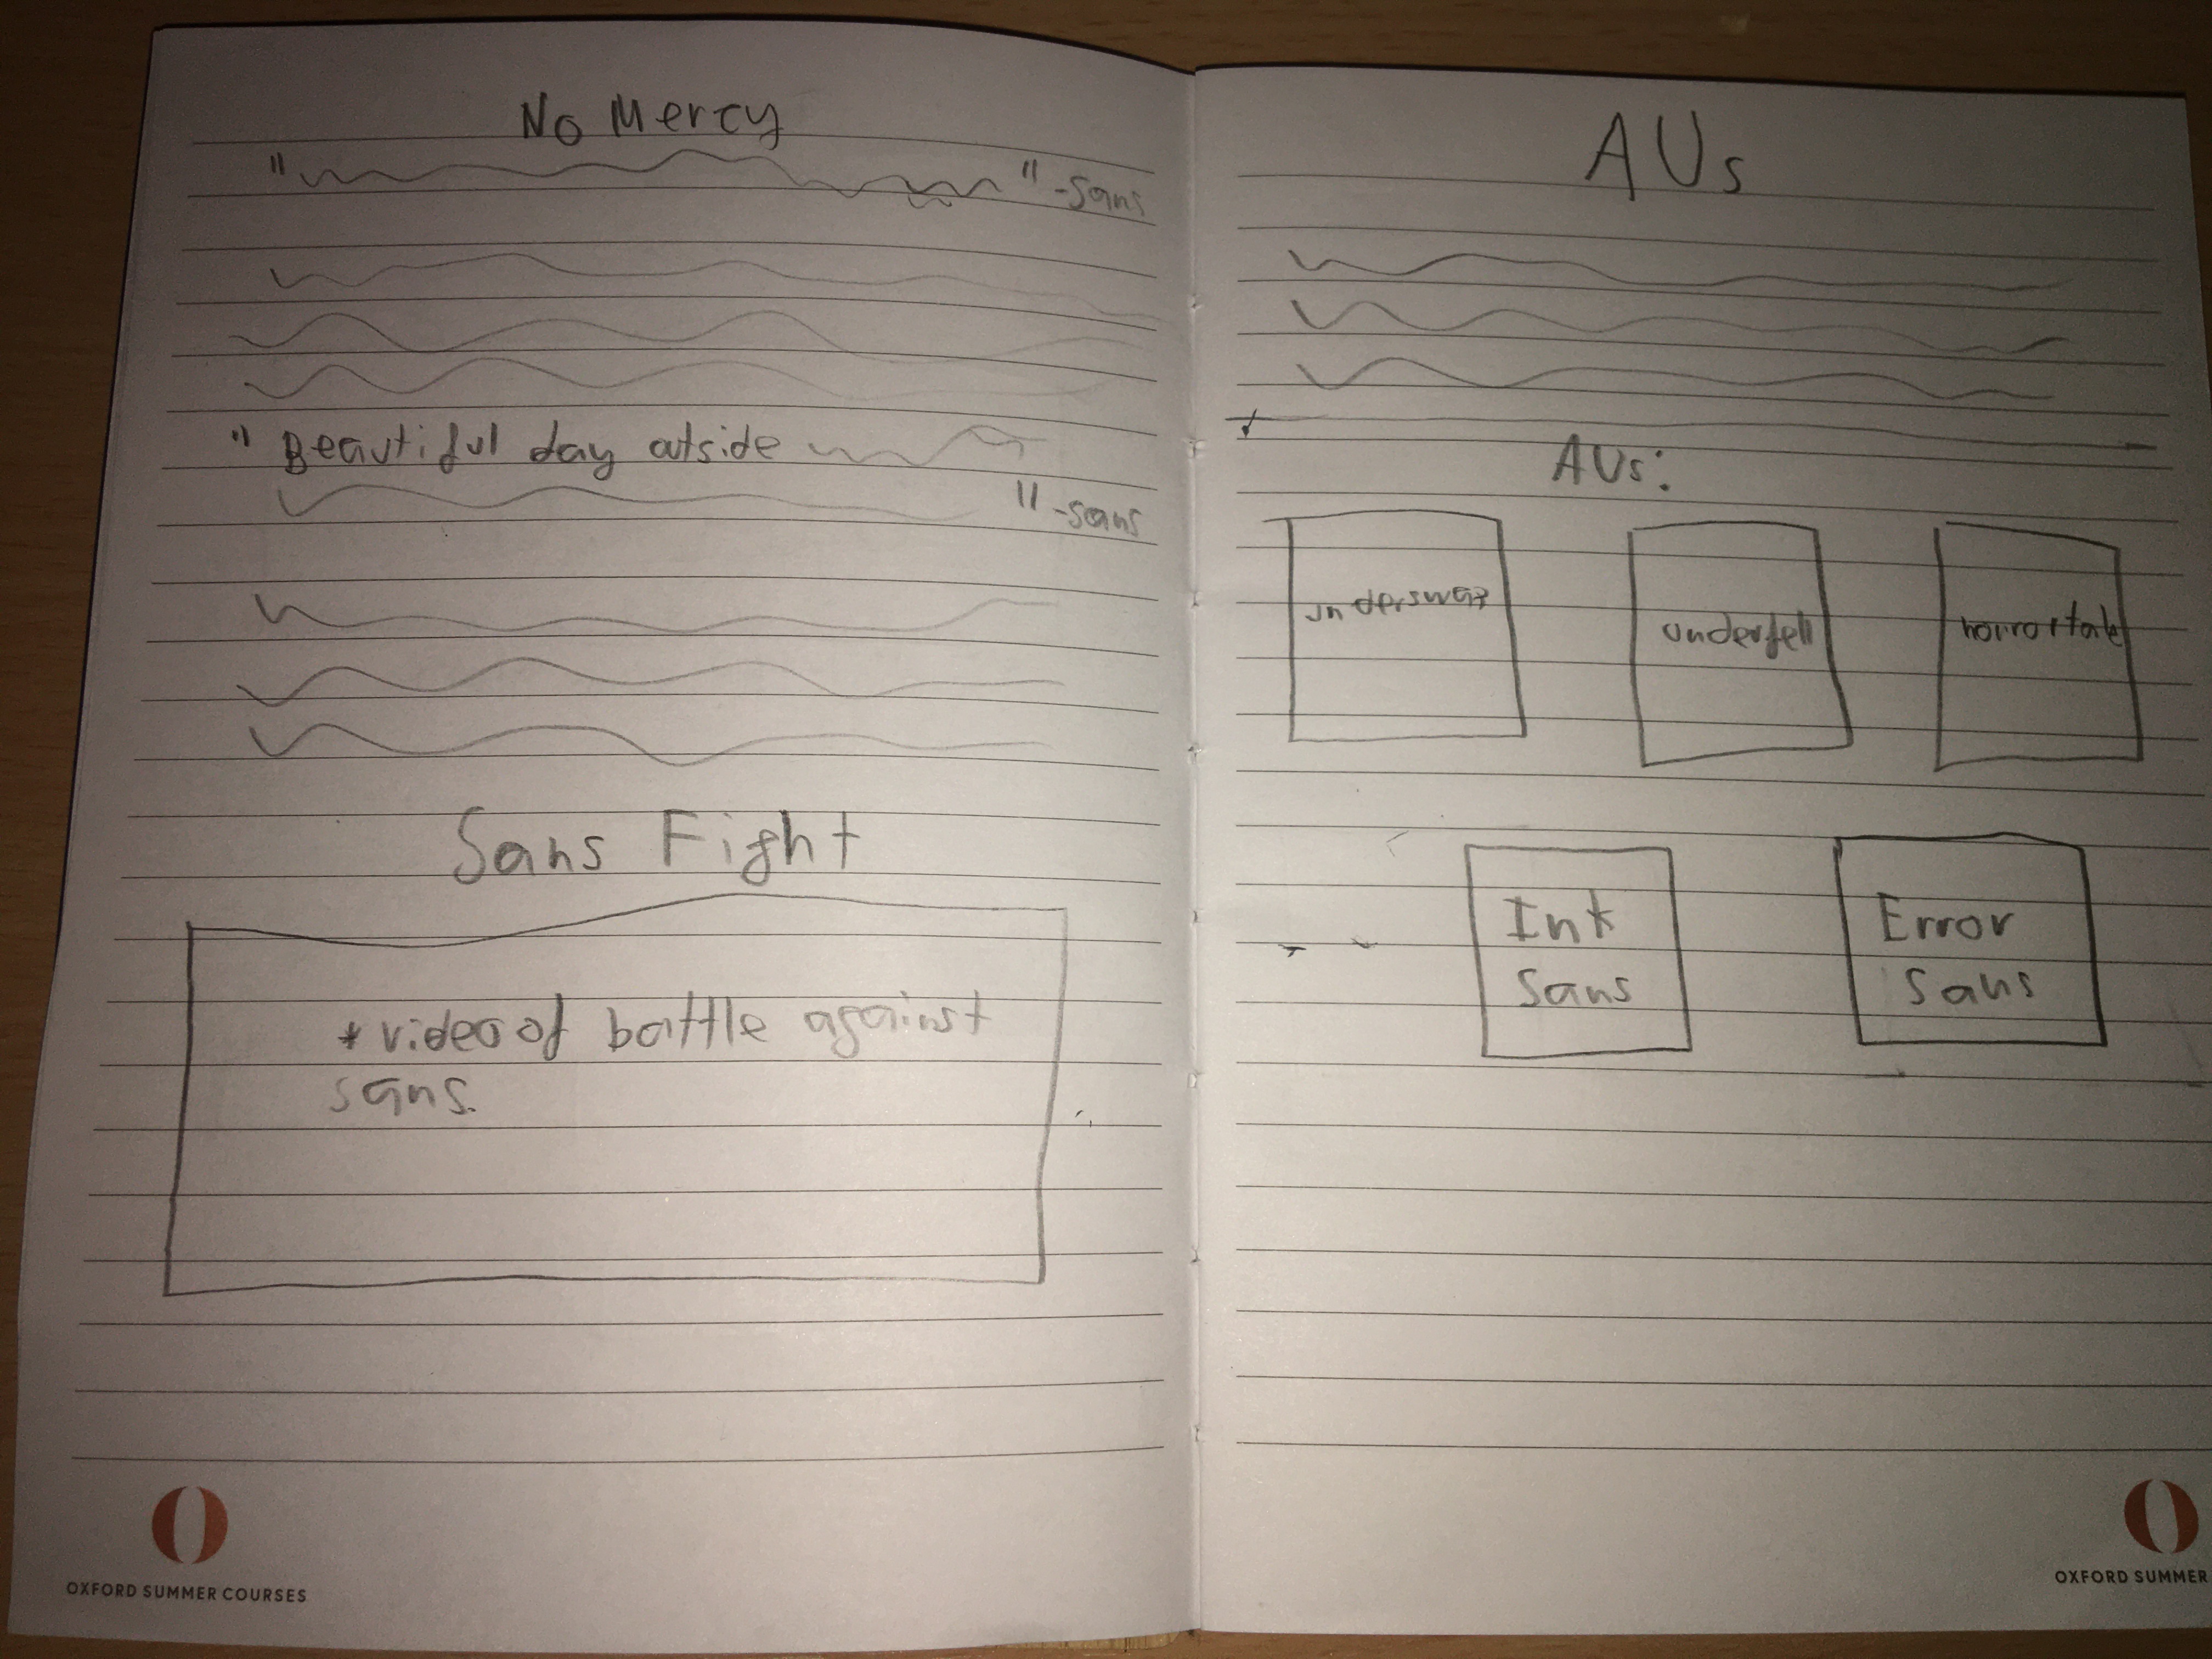 No Mercy
" " -sans
" Beautiful day outside
" -sans
Sans Fight
* video of battle against
sans.
OXFORD SUMMER COURSES
AUs
AUs:
underswap
underfell
horrortale
Ink
Sans
Error
Sans
OXFORD SUMMER